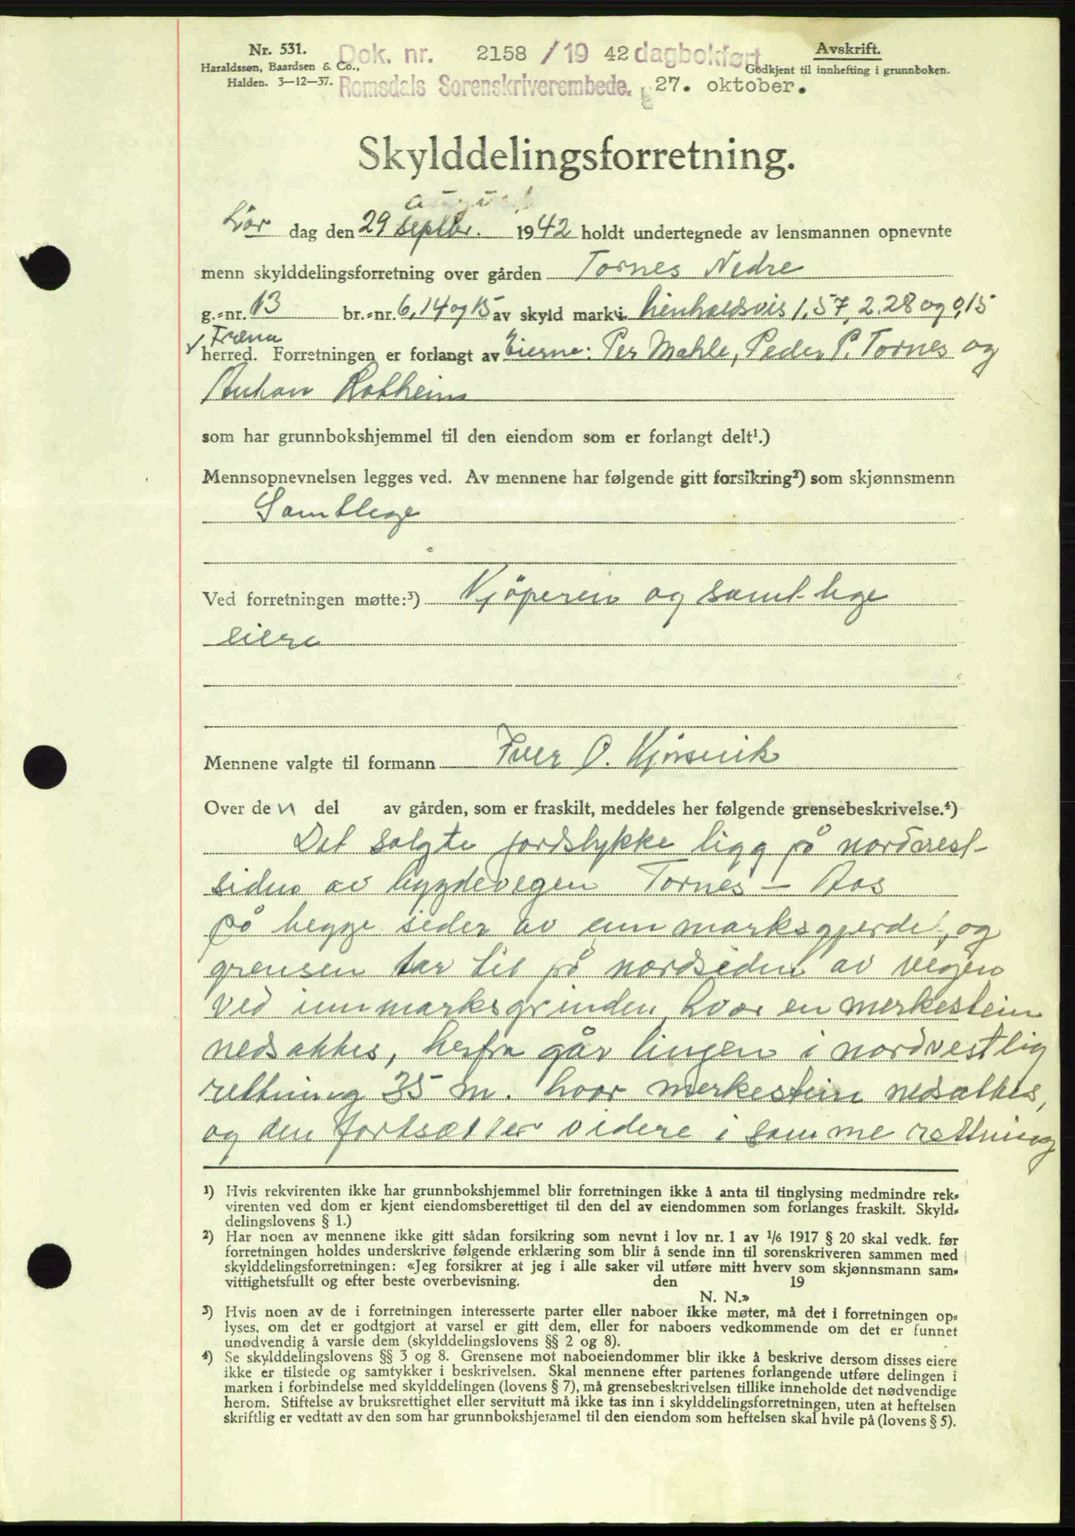 Nr. 531.
Haraldssøn, Baardsen & Co.,
Halden. 3-12-37.
Dok. nr. 2158 / 19 42 dagbokført
Romsdals Sorenskriverembede. 27. oktober.
Avskrift.
Godkjent til innhefting i grunnboken.
Skylddelingsforretning.
august
Lör dag den 29 septbr. 1942 holdt undertegnede av lensmannen opnevnte
menn skylddelingsforretning over gården Tornes Nedre
g.-nr. 13 br.-nr. 6, 14 og 15 av skyld mark i henholdsvis 1,57, 2.28 og 0,15
Fræna
herred. Forretningen er forlangt av Eierne: Per Mahle, Peder P. Tornes og
Rotheim
som har grunnbokshjemmel til den eiendom som er forlangt delt¹.)
Mennsopnevnelsen legges ved. Av mennene har følgende gitt forsikring²) som skjønnsmenn
Samtlege
Ved forretningen møtte:³) Kjöperen og samtlige
eiere
Mennene valgte til formann Iver O. Kjörsvik
Over den del av gården, som er fraskilt, meddeles her følgende grensebeskrivelse.⁴)
Det solgte jordstykke ligg på nordvest-
siden av bygdevegen Tornes – Aas
på begge sider av innmarksgjerde, og
grensen tar til på nordsiden av vegen
ved innmarksgrinden, hvor en merkestein
nedsattes, herfra går linjen i nordvestlig
rettning 35 m. hvor merkestein nedsattes,
og den fortsætter videre i samme rettning
¹) Hvis rekvirenten ikke har grunnbokshjemmel blir forretningen ikke å anta til tinglysing medmindre rek-
virenten ved dom er kjent eiendomsberettiget til den del av eiendommen som forlanges fraskilt. Skyld-
delingslovens § 1.)
²) Har noen av mennene ikke gitt sådan forsikring som nevnt i lov nr. 1 av 1/6 1917 § 20 skal vedk. før
forretningen holdes underskrive følgende erklæring som blir å sende inn til sorenskriveren sammen med
skylddelingsforretningen: «Jeg forsikrer at jeg i alle saker vil utføre mitt hverv som skjønnsmann sam-
vittighetsfullt og efter beste overbevisning. den 19
N. N.»
³) Hvis noen av de i forretningen interesserte parter eller naboer ikke møter, må det i forretningen op-
lyses, om det er godtgjort at varsel er gitt dem, eller for naboers vedkommende om det er funnet
unødvendig å varsle dem (skylddelingslovens §§ 2 og 8).
⁴) Se skylddelingslovens §§ 3 og 8. Grensene mot naboeiendommer blir ikke å beskrive dersom disses eiere
ikke er tilstede og samtykker i beskrivelsen. Skal mennene efter partenes forlangende utføre delingen i
marken i forbindelse med skylddelingen (lovens § 7), må grensebeskrivelsen tillike inneholde det nødvendige
herom. Stiftelse av bruksrettighet eller servitutt må ikke tas inn i skylddelingsforretningen, uten at heftelsen
skriftlig er vedtatt av den som har grunnbokshjemmel til den eiendom som heftelsen skal hvile på (lovens § 5).